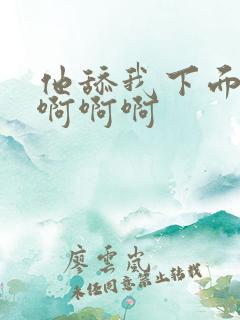 他舔我下面
啊啊啊
廖雲岚
未经同意禁止转载